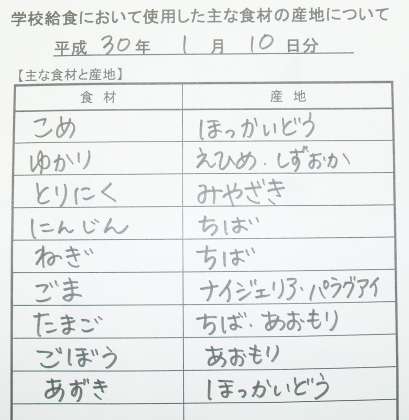 学校給食において使用した主な食材の産地について
平成 30 年 1 月 10 日分
【主な食材と産地】
食 材 産 地
こめ ほっかいどう
ゆかり えひめ・しずおか
とりにく みやざき
にんじん ちば
ねぎ ちば
ごま ナイジェリア・パラグアイ
たまご ちば・あおもり
ごぼう あおもり
あずき ほっかいどう